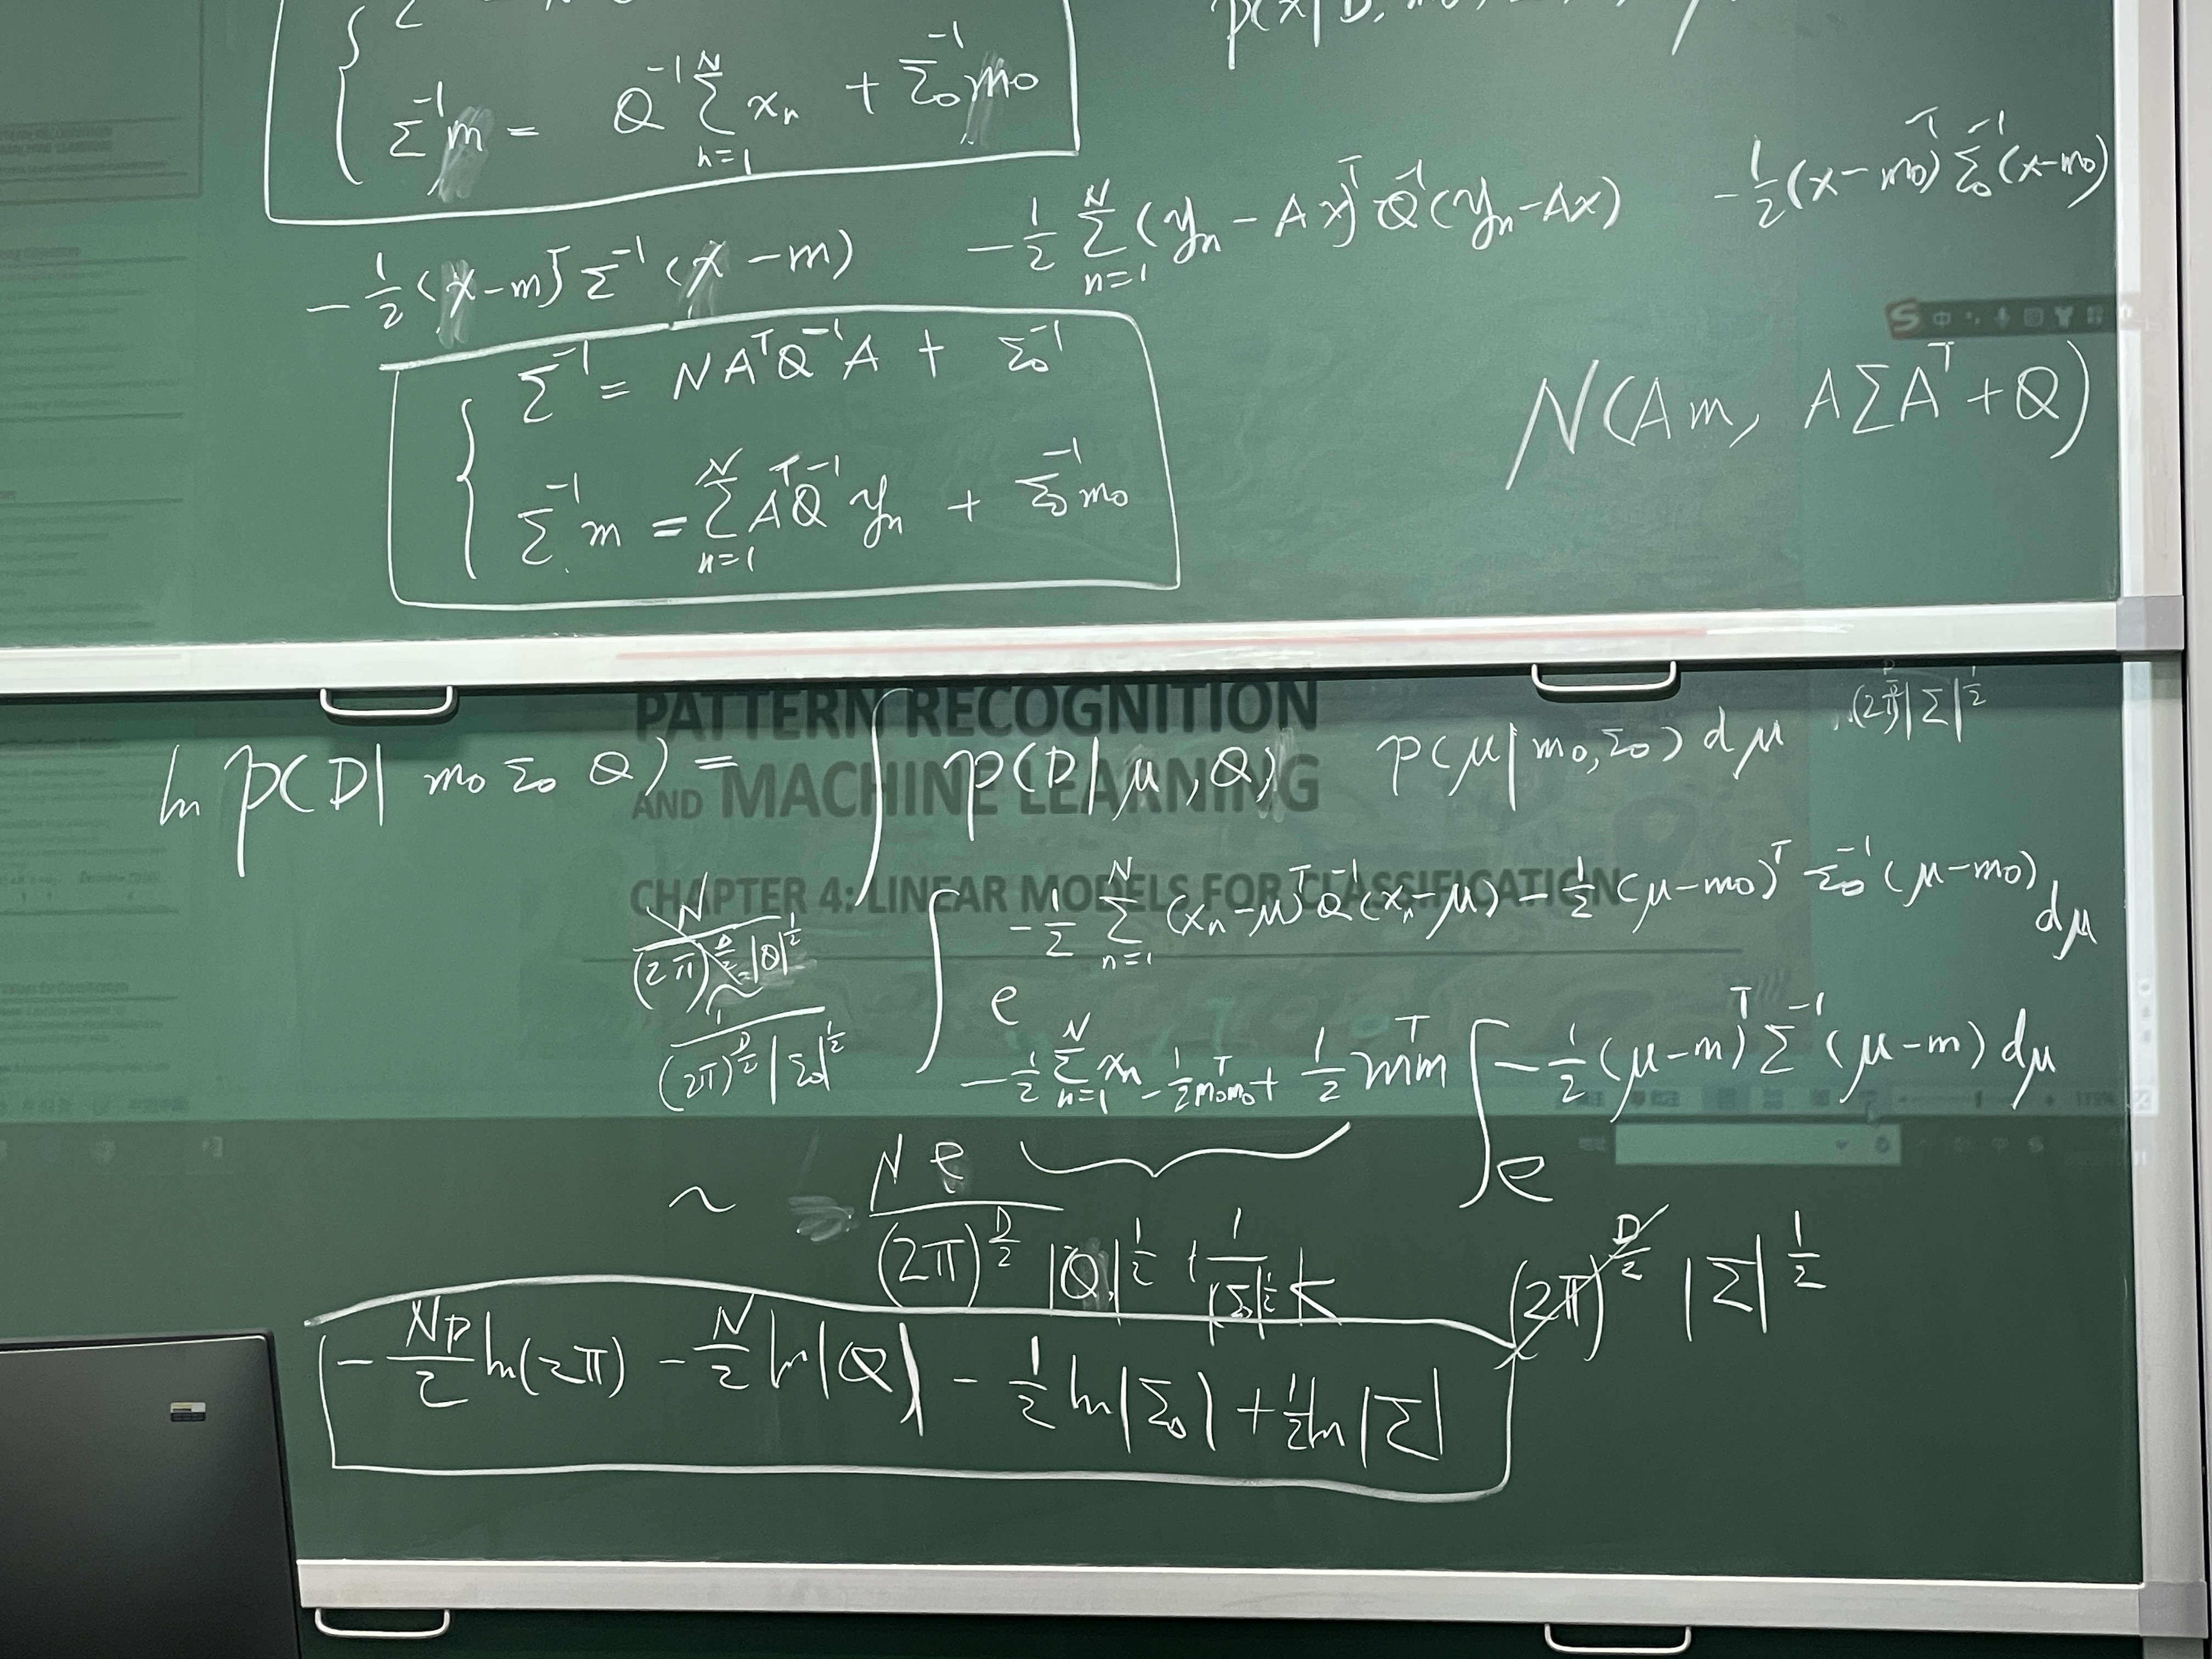 p(x|D, m₀,
Σ⁻¹m = Q⁻¹ Σ_{n=1}^{N} xₙ + Σ₀⁻¹m₀
-½(x-m)ᵀΣ⁻¹(x-m)
-½ Σ_{n=1}^{N} (yₙ-Ax)ᵀQ⁻¹(yₙ-Ax)
-½(x-m₀)ᵀΣ₀⁻¹(x-m₀)
Σ⁻¹ = NAᵀQ⁻¹A + Σ₀⁻¹
Σ⁻¹m = Σ_{n=1}^{N} AᵀQ⁻¹yₙ + Σ₀⁻¹m₀
N(Am, AΣAᵀ+Q)
PATTERN RECOGNITION
AND MACHINE LEARNING
CHAPTER 4: LINEAR MODELS FOR CLASSIFICATION
(2π)^{D/2}|Σ|^{1/2}
ln p(D| m₀ Σ₀ Q) = ∫ p(D|μ,Q) p(μ|m₀,Σ₀)dμ
N/((2π)^{D/2}|Q|^{1/2})
1/((2π)^{D/2}|Σ₀|^{1/2})
∫ e^{-½ Σ_{n=1}^{N} (xₙ-μ)ᵀQ⁻¹(xₙ-μ) - ½(μ-m₀)ᵀΣ₀⁻¹(μ-m₀)} dμ
-½ Σ_{n=1}^{N} xₙ - ½m₀ᵀm₀ + ½mᵀm ∫ e^{-½(μ-m)ᵀΣ⁻¹(μ-m)} dμ
~ N e/((2π)^{D/2}|Q|^{1/2}) 1/|Σ₀|^{1/2}
(2π)^{D/2} |Σ|^{1/2}
-ND/2 ln(2π) - N/2 ln|Q| - ½ ln|Σ₀| + ½ ln|Σ|